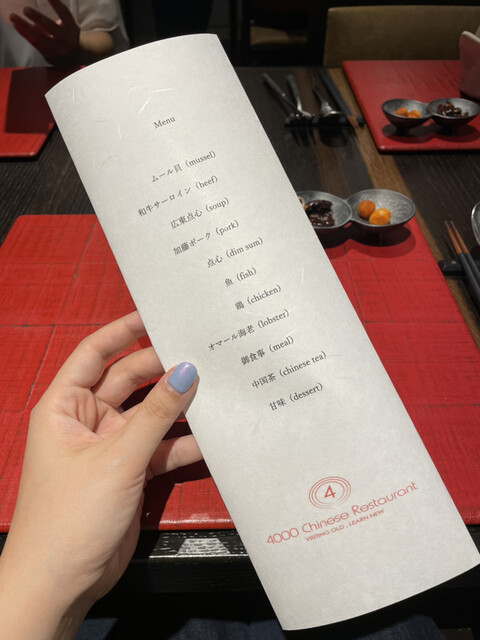 Menu
ムール貝（mussel）
和牛サーロイン（beef）
広東点心（soup）
加藤ポーク（pork）
点心（dim sum）
魚（fish）
鶏（chicken）
オマール海老（lobster）
御食事（meal）
中国茶（chinese tea）
甘味（dessert）
4
4000 Chinese Restaurant
VISITING OLD , LEARN NEW